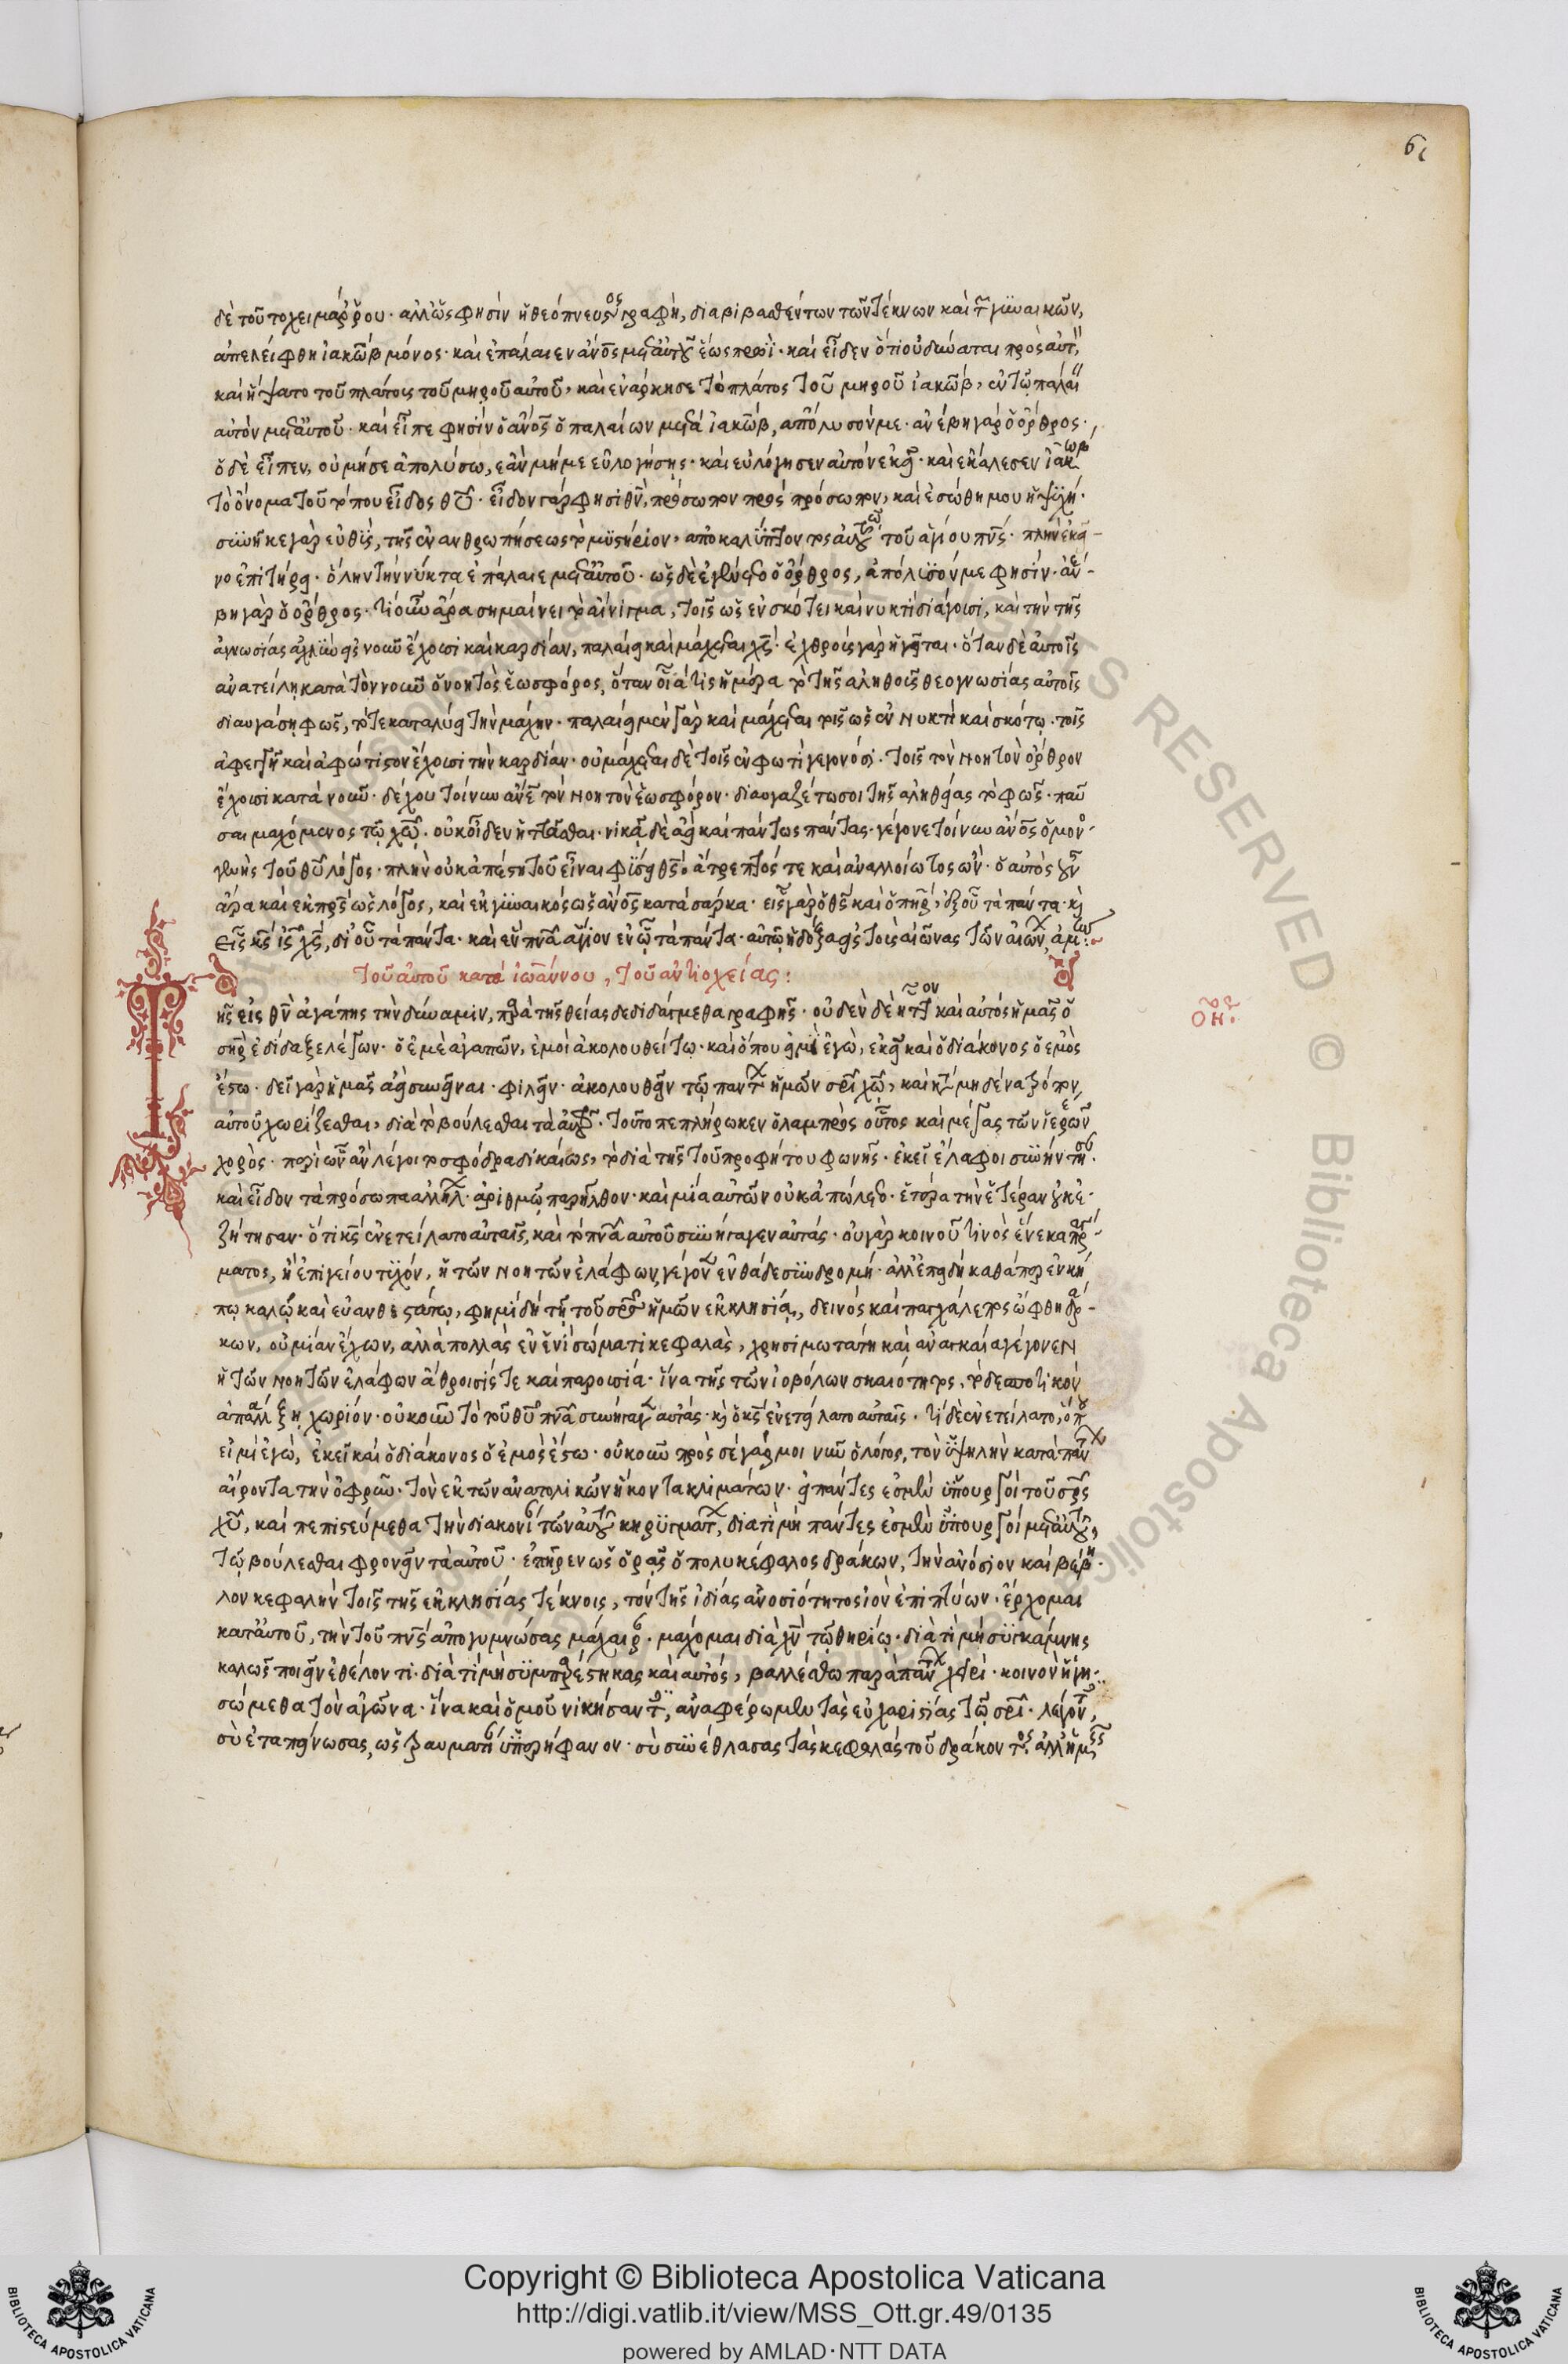 61
δὲ τοῦτο χειμάρρου· ἀλλ' ὥς φησὶν ἡ θεόπνευστος γραφὴ, διαβιβασθέντων τῶν τέκνων καὶ τ γυναικῶν,
ἀπελείφθη ἰακὼβ μόνος· καὶ ἐπάλαιεν ἄνος μετ' αὐτοῦ ἕως πρωῒ· καὶ εἶδεν ὅτι οὐ δύναται πρὸς αὐτ,
καὶ ἥψατο τοῦ πλάτους τοῦ μηροῦ αὐτοῦ, καὶ ἐνάρκησε τὸ πλάτος τοῦ μηροῦ ἰακὼβ, ἐν τῷ παλαί
αὐτὸν μετ' αὐτοῦ· καὶ εἶπε φησὶν ὁ ἄνος ὁ παλαίων μετὰ ἰακὼβ, ἀπόλυσόν με· ἀνέβη γὰρ ὁ ὄρθρος·
ὁ δὲ εἶπεν, οὐ μή σε ἀπολύσω, ἐὰν μή με εὐλογήσῃς· καὶ εὐλόγησεν αὐτὸν ἐκεῖ· καὶ ἐκάλεσεν ἰακὼβ
τὸ ὄνομα τοῦ τόπου εἶδος θυ· εἶδον γάρ φησι θν, πρόσωπον πρὸς πρόσωπον, καὶ ἐσώθη μου ἡ ψυχή·
συνῆκε γὰρ εὐθὺς, τῆς ἐνανθρωπήσεως τὸ μυστήριον, ἀποκαλύπτοντος αὐτῷ τοῦ ἁγίου πνς· πλὴν ἐκεῖ
νο ἐπιτήρει· ὅλην τὴν νύκτα ἐπάλαιε μετ' αὐτοῦ· ὡς δὲ ἐγένετο ὁ ὄρθρος, ἀπόλυσόν με φησίν· ἀνέ-
βη γὰρ ὁ ὄρθρος· τί οὖν ἄρα σημαίνει τὸ αἴνιγμα, τοῖς ὡς ἐν σκότει καὶ νυκτὶ διάγουσι, καὶ τὴν τῆς
ἀγνωσίας ἀχλὺν εἰς νοῦν ἔχουσι καὶ καρδίαν, παλαίει καὶ μάχεται χς· ἐχθροὺς γὰρ ἡγεῖται· ὅταν δὲ αὐτοῖς
ἀνατείλῃ κατὰ τὸν νοῦν ὁ νοητὸς ἑωσφόρος, ὅταν οἷά τις ἡμέρα τὸ τῆς ἀληθοῦς θεογνωσίας αὐτοῖς
διαυγάσῃ φῶς, τότε καταλύει τὴν μάχην· παλαίει μὲν γὰρ καὶ μάχεται τοῖς ὡς ἐν νυκτὶ καὶ σκότῳ· τοῖς
ἀφεγγῆ καὶ ἀφώτιστον ἔχουσι τὴν καρδίαν· οὐ μάχεται δὲ τοῖς ἐν φωτὶ γεγονόσι· τοῖς τὸν νοητὸν ὄρθρον
ἔχουσι κατὰ νοῦν· δέχου τοίνυν ἄνε τὸν νοητὸν ἑωσφόρον· διαυγαζέτω σοι τῆς ἀληθείας τὸ φῶς· παῦ
σαι μαχόμενος τῷ χω· οὐκ οἶδεν ἡττᾶσθαι· νικᾷ δὲ ἀεὶ καὶ πάντως πάντας· γέγονε τοίνυν ἄνος ὁ μονο
γενὴς τοῦ θυ λόγος· πλὴν οὐκ ἀπέστη τοῦ εἶναι φύσει θς· ἄτρεπτός τε καὶ ἀναλλοίωτος ὤν· ὁ αὐτὸς οὖν
ἄρα καὶ ἐκ πρς ὡς λόγος, καὶ ἐκ γυναικὸς ὡς ἄνος κατὰ σάρκα· εἷς γὰρ ὁ θς καὶ ὁ πηρ, ἐξ οὗ τὰ πάντα· κ
εἷς κς ις χς, δι' οὗ τὰ πάντα· καὶ ἓν πνα ἅγιον ἐν ᾧ τὰ πάντα· αὐτῷ ἡ δόξα εἰς τοὺς αἰῶνας τῶν αἰών, ἀμήν:
τοῦ αὐτοῦ κατὰ ἰωάννου, τοῦ ἀντιοχείας:
Τῆς εἰς θν ἀγάπης τὴν δύναμιν, παρὰ τῆς θείας δεδιδάγμεθα γραφῆς· οὐδὲν δὲ ἧττον καὶ αὐτὸς ἡμᾶς ὁ
σηρ ἐδίδαξε λέγων· ὁ ἐμὲ ἀγαπῶν, ἐμοὶ ἀκολουθείτω· καὶ ὅπου εἰμὶ ἐγὼ, ἐκεῖ καὶ ὁ διάκονος ὁ ἐμὸς
ἔστω· δεῖ γὰρ ἡμᾶς ἀεὶ συνεῖναι· φιλεῖν· ἀκολουθεῖν τῷ πάντ ἡμῶν σρι χω, καὶ κατὰ μηδένα τρόπον
αὐτοῦ χωρίζεσθαι, διὰ τὸ βούλεσθαι τὰ αὐτοῦ· τοῦτο πεπλήρωκεν ὁ λαμπρὸς οὗτος καὶ μέγας τῶν ἱερέων
χορὸς· περὶ ὧν ἂν λέγοιτο σφόδρα δικαίως, τὸ διὰ τῆς τοῦ προφήτου φωνῆς· ἐκεῖ ἔλαφοι συνήντησ·
καὶ εἶδον τὰ πρόσωπα ἀλλήλ· ἀριθμῷ παρῆλθον· καὶ μία αὐτῶν οὐκ ἀπώλετο· ἑτέρα τὴν ἑτέραν οὐκ ἐ-
ζήτησαν· ὅτι κς ἐνετείλατο αὐταῖς, καὶ τὸ πνα αὐτοῦ συνήγαγεν αὐτάς· οὐ γὰρ κοινοῦ τινὸς ἕνεκα πρά
ματος, ἢ ἐπιγείου τυχόν, ἡ τῶν νοητῶν ἐλάφων γέγον ἐνθάδε συνδρομή· ἀλλ' ἐπειδὴ καθάπερ ἐν κή
πῳ καλῷ καὶ εὐανθεστάτῳ, φημὶ δὴ τῇ τοῦ σρς ἡμῶν ἐκκλησίᾳ, δεινὸς καὶ παγχάλεπος ὤφθη δρά-
κων, οὐ μίαν ἔχων, ἀλλὰ πολλὰς ἐν ἑνὶ σώματι κεφαλὰς, χρησιμωτάτη καὶ ἀναγκαία γέγονεν
ἡ τῶν νοητῶν ἐλάφων ἄθροισίς τε καὶ παρουσία· ἵνα τῆς τῶν ἰοβόλων σκαιότητος, τὸ δεσποτικὸν
ἀπαλλάξῃ χωρίον· οὐκοῦν τὸ τοῦ θυ πνα συνήγαγ αὐτάς· κ ὁ κς ἐνετείλατο αὐταῖς· τί δὲ ἐνετείλατο, ὅπου
εἰμὶ ἐγὼ, ἐκεῖ καὶ ὁ διάκονος ὁ ἐμὸς ἔστω· οὐκοῦν πρὸς σὲ γάρ μοι νῦν ὁ λόγος, τὸν ὑψηλὴν κατὰ πάντ
αἴροντα τὴν ὀφρῦν· τὸν ἐκ τῶν ἀνατολικῶν ἥκοντα κλιμάτων· εἰ πάντες ἐσμὲν ὑπουργοὶ τοῦ σρς
χυ, καὶ πεπιστεύμεθα τὴν διακονί τῶν αὐτοῦ κηρυγμάτ, διατί μὴ πάντες ἐσμὲν ὑπουργοὶ μετ' αὐτοῦ,
τῷ βούλεσθαι φρονεῖν τὰ αὐτοῦ· ἐπῆρεν ὡς ὁρᾷς ὁ πολυκέφαλος δράκων, τὴν ἀνόσιον καὶ βέβη
λον κεφαλὴν τοῖς τῆς ἐκκλησίας τέκνοις, τὸν τῆς ἰδίας ἀνοσιότητος ἰὸν ἐπιπτύων· ἔρχομαι
κατ' αὐτοῦ, τὴν τοῦ πνς ἀπογυμνώσας μάχαιρ· μάχομαι διὰ χν τῷ θηρίῳ· διὰ τί μὴ συγκάμνῃς
καλῶς ποιεῖν ἐθέλοντι· διὰ τί μὴ συμπαρέστηκας καὶ αὐτός, βαλλέσθω παρὰ πάντ χειρὶ· κοινὸν ἡγη
σώμεθα τὸν ἀγῶνα· ἵνα καὶ ὁμοῦ νικήσαντ, ἀναφέρωμεν τὰς εὐχαριστίας τῷ σρι· λέγοντ,
σὺ ἐταπείνωσας, ὡς τραυματί ὑπερήφανον· σὺ συνέθλασας τὰς κεφαλὰς τοῦ δράκοντος, ἀλλ' ἡμεῖς
Copyright © Biblioteca Apostolica Vaticana
http://digi.vatlib.it/view/MSS_Ott.gr.49/0135
powered by AMLAD·NTT DATA
BIBLIOTECA APOSTOLICA VATICANA
BIBLIOTECA APOSTOLICA VATICANA